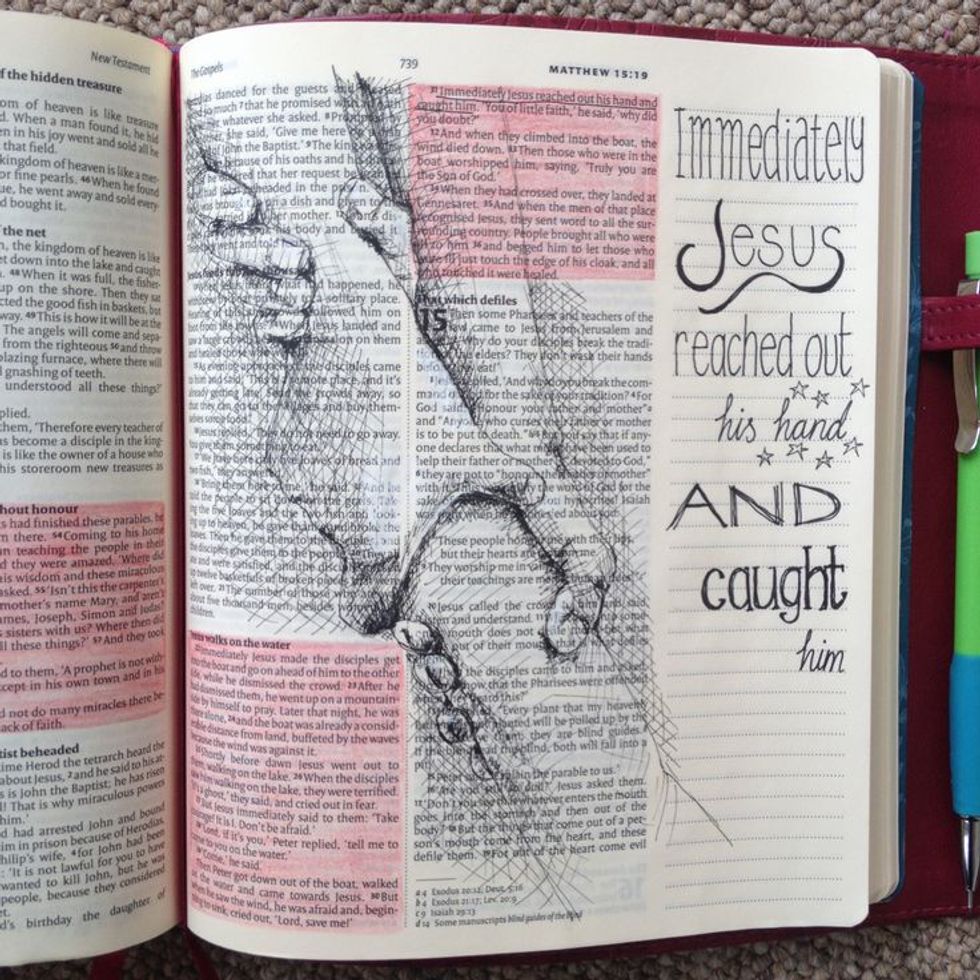 New Testament
f the hidden treasure
om of heaven is like treasure
d. When a man found it, he hid
en in his joy went and sold all he
that field.
kingdom of heaven is like a mer-
or fine pearls. 46 When he found
ue, he went away and sold every-
d bought it.
the net
n, the kingdom of heaven is like
et down into the lake and caught
h. 48 When it was full, the fisher-
up on the shore. Then they sat
cted the good fish in baskets, but
way. 49 This is how it will be at the
The angels will come and sepa-
from the righteous 50 and throw
blazing furnace, where there will
gnashing of teeth.
understood all these things?'
plied.
them, 'Therefore every teacher of
s become a disciple in the king-
is like the owner of a house who
his storeroom new treasures as
hout honour
s had finished these parables, he
m there. 54 Coming to his home
an teaching the people in their
d they were amazed. 'Where did
is wisdom and these miraculous
asked. 55 'Isn't this the carpenter's
mother's name Mary, and aren't
ames, Joseph, Simon and Judas?
sisters with us? Where then did
ll these things?' 57 And they took
d to them, 'A prophet is not with-
cept in his own town and in his
d not do many miracles there be-
ack of faith.
tist beheaded
time Herod the tetrarch heard the
about Jesus, 2 and he said to his at-
is is John the Baptist; he has risen
d! That is why miraculous powers
him.'
d had arrested John and bound
him in prison because of Herodias,
Philip's wife, 4 for John had been
'It is not lawful for you to have
wanted to kill John, but he was
people, because they considered
et.
d's birthday the daughter of
The Gospels
739
MATTHEW 15:19
danced for the guests and
so much 7 that he promised with an oath
whatever she asked.
she said, 'Give me here on a dish
of John the Baptist.' 9 The king
because of his oaths and his
ordered that her request be
had John beheaded in the
was brought in on a dish and given to the
carried it to her mother.
his body and buried it.
went and told
Jesus feeds the
what had happened, he
withdrew by boat privately to a solitary place.
Hearing of this followed him on
foot from the When Jesus landed and
saw a large crowd, compassion on them
and healed those who
15 As evening approached, the disciples came
to him and said, 'This is a remote place, and it's
already getting late. Send the crowds away, so
that they can go to the villages and buy them-
selves some food.'
16 Jesus replied, 'They do not need to go away.
You give them something to eat.'
'We have here only five loaves of bread and
two fish,' they answered.
'Bring them here to me,' he said. And he
told the people to sit down on the grass. Tak-
ing the five loaves and the two fish and look-
ing up to heaven, he gave thanks and broke the
loaves. Then he gave them to the disciples, and
the disciples gave them to the people. They
all ate and were satisfied, and the disciples
up twelve basketfuls of broken pieces that were
left over. 21 The number of those who ate was
about five thousand men, besides women
children.
Jesus walks on the water
22 Immediately Jesus made the disciples get
into the boat and go on ahead of him to the other
side, while he dismissed the crowd. 23 After he
had dismissed them, he went up on a mountain-
side by himself to pray. Later that night, he was
there alone, 24 and the boat was already a consid-
erable distance from land, buffeted by the waves
because the wind was against it.
25 Shortly before dawn Jesus went out to
them, walking on the lake. 26 When the disciples
saw him walking on the lake, they were terrified.
'It's a ghost,' they said, and cried out in fear.
27 But Jesus immediately said to them: 'Take
courage! It is I. Don't be afraid.'
28 'Lord, if it's you,' Peter replied, 'tell me to
come to you on the water.'
29 'Come,' he said.
Then Peter got down out of the boat, walked
on the water and came towards Jesus. 30 But
when he saw the wind, he was afraid and, begin-
ning to sink, cried out, 'Lord, save me!'
31 Immediately Jesus reached out his hand and
caught him. 'You of little faith,' he said, 'why did
you doubt?'
32 And when they climbed into the boat, the
wind died down. 33 Then those who were in the
boat worshipped him, saying, 'Truly you are
the Son of God.'
34 When they had crossed over, they landed at
Gennesaret. 35 And when the men of that place
recognised Jesus, they sent word to all the sur-
rounding country. People brought all who were
ill to him 36 and begged him to let those who
were ill just touch the edge of his cloak, and all
who touched it were healed.
That which defiles
15 Then some Pharisees and teachers of the
law came to Jesus from Jerusalem and
'Why do your disciples break the tradi-
elders? They don't wash their hands
before they eat!'
3 Jesus replied, 'And why do you break the com-
mand of God for the sake of your tradition? 4 For
God said, "Honour your father and mother"
and "Anyone who curses their father or mother
is to be put to death." But you say that if any-
one declares that what might have been used to
help their father or mother is "devoted to God,"
they are not to "honour their father or mother"
with it. Thus you nullify the word of God for the
sake of you hypocrites! Isaiah
was right when he prophesied about you:
'These people honour me with their lips,
but their hearts are
They worship me in
their teachings are human rules.'
10 Jesus called the crowd to him and said,
'Listen and understand. into some-
mouth does not defile them, but what
out of their mouth, that
the disciples came to him and asked,
know that the Pharisees were offended
when they heard this?'
'Every plant that my heavenly
planted will be pulled up by the
they are blind guides.
If the blind lead the blind, both will fall into a
pit.'
15 Peter said, 'Explain the parable to us.'
'Are you still so dull?' Jesus asked them.
17 'Don't you see that whatever enters the mouth
goes into the stomach and then out of the
body? 18 But the things that come out of a per-
son's mouth come from the heart, and these
defile them. 19 For out of the heart come evil
a 4 Exodus 20:12; Deut. 5:16
b 4 Exodus 21:17; Lev. 20:9
c 9 Isaiah 29:13
d 14 Some manuscripts blind guides of the blind
Immediately
Jesus
reached out
his hand
AND
caught
him